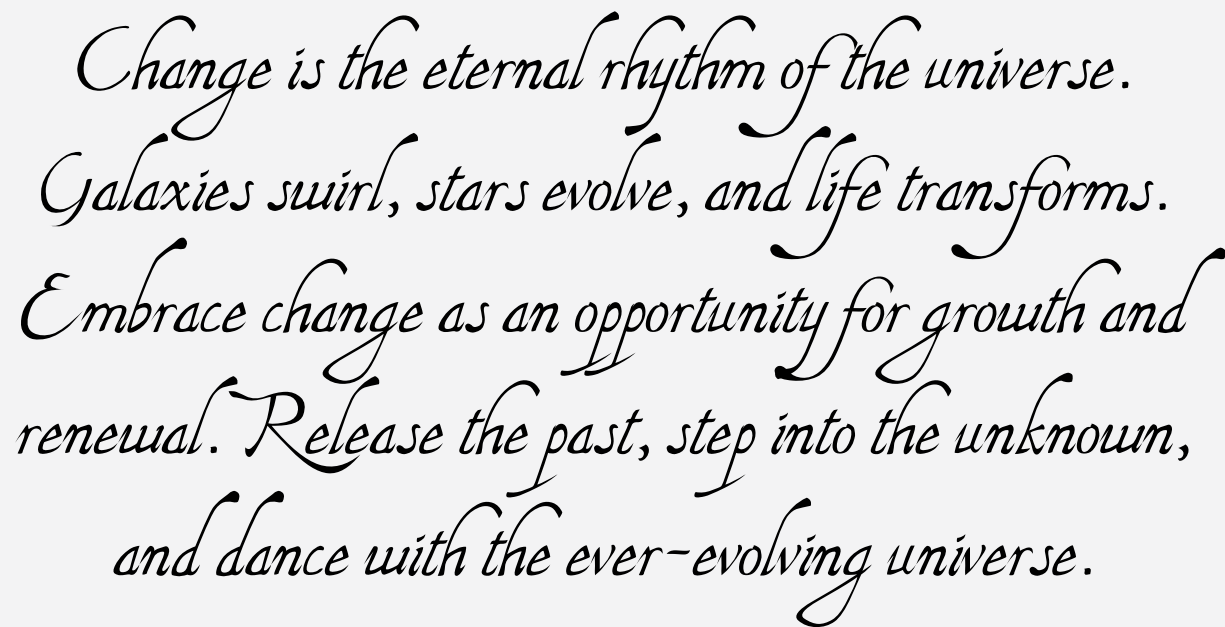 Change is the eternal rhythm of the universe.
Galaxies swirl, stars evolve, and life transforms.
Embrace change as an opportunity for growth and
renewal. Release the past, step into the unknown,
and dance with the ever-evolving universe.